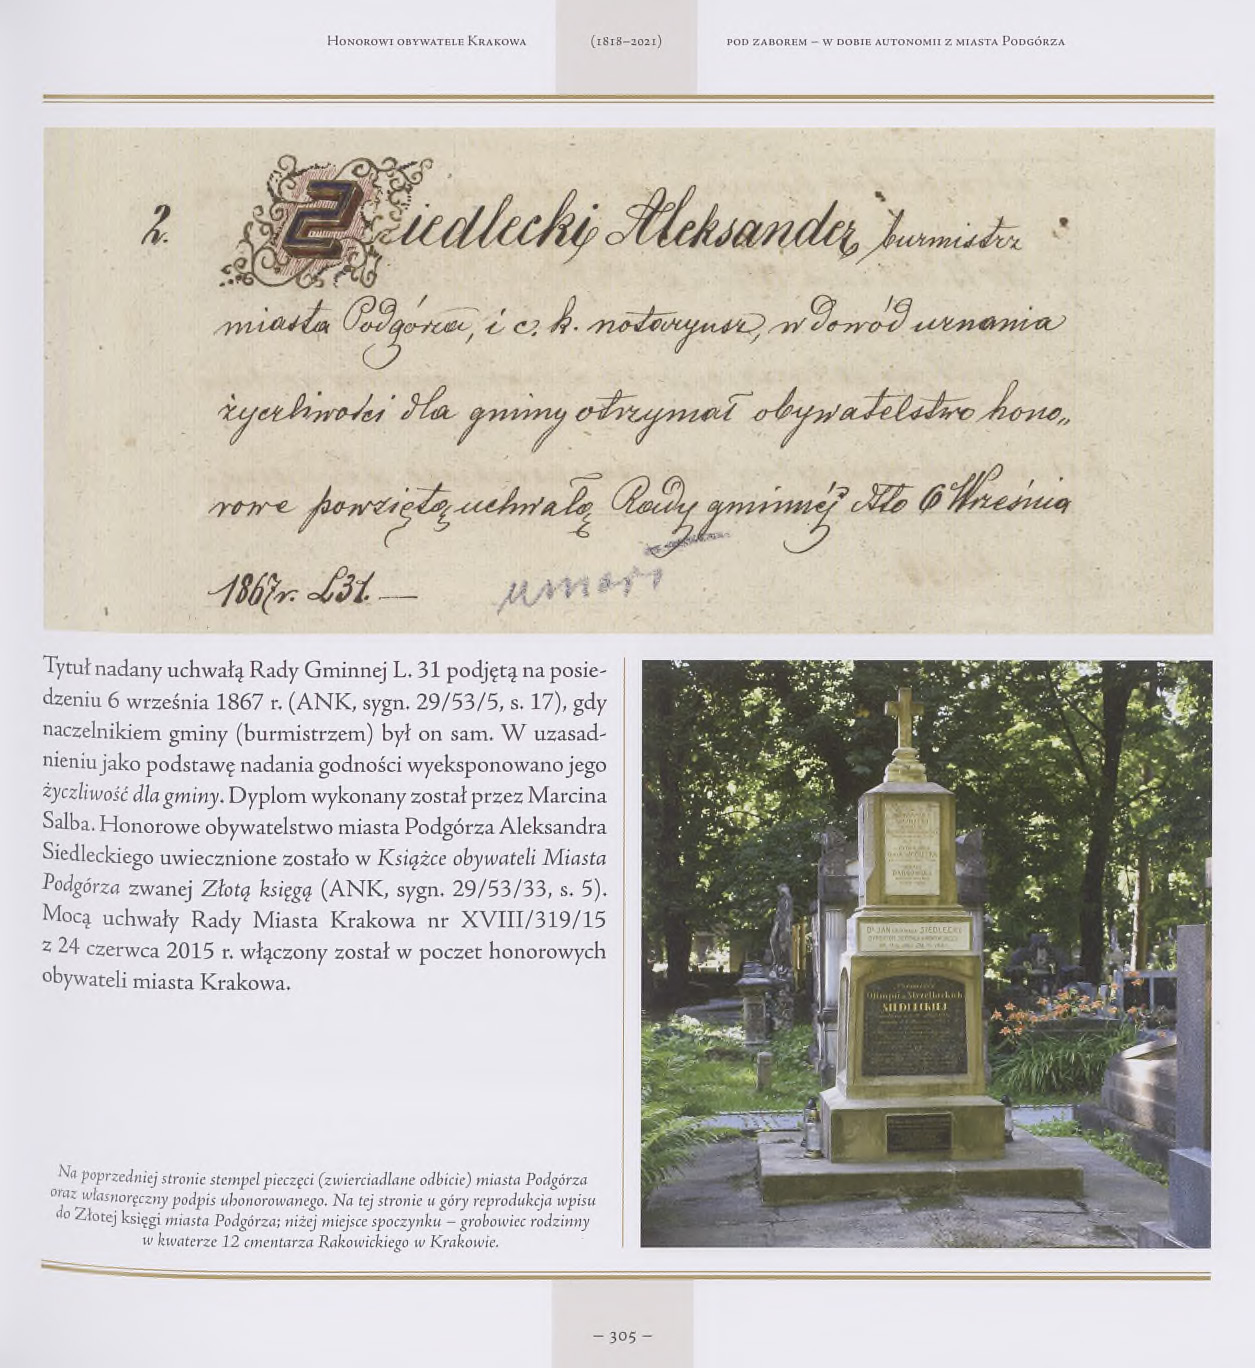 Honorowi obywatele Krakowa (1818–2021) pod zaborem – w dobie autonomii z miasta Podgórza
2. Siedlecki Aleksander burmistrz
miasta Podgórza, i c. k. notaryusz, w dowód uznania
życzliwości dla gminy otrzymał obywatelstwo hono„
rowe powziętą uchwałą Rady gminnéj dto 6 Września
1867 r. L 31. —
umarł
Tytuł nadany uchwałą Rady Gminnej L. 31 podjętą na posie-
dzeniu 6 września 1867 r. (ANK, sygn. 29/53/5, s. 17), gdy
naczelnikiem gminy (burmistrzem) był on sam. W uzasad-
nieniu jako podstawę nadania godności wyeksponowano jego
życzliwość dla gminy. Dyplom wykonany został przez Marcina
Salba. Honorowe obywatelstwo miasta Podgórza Aleksandra
Siedleckiego uwiecznione zostało w Książce obywateli Miasta
Podgórza zwanej Złotą księgą (ANK, sygn. 29/53/33, s. 5).
Mocą uchwały Rady Miasta Krakowa nr XVIII/319/15
z 24 czerwca 2015 r. włączony został w poczet honorowych
obywateli miasta Krakowa.
Dr JAN SIEDLECKI
Olimpii z Strzelbickich
SIEDLECKIEJ
Na poprzedniej stronie stempel pieczęci (zwierciadlane odbicie) miasta Podgórza
oraz własnoręczny podpis uhonorowanego. Na tej stronie u góry reprodukcja wpisu
do Złotej księgi miasta Podgórza; niżej miejsce spoczynku – grobowiec rodzinny
w kwaterze 12 cmentarza Rakowickiego w Krakowie.
– 305 –